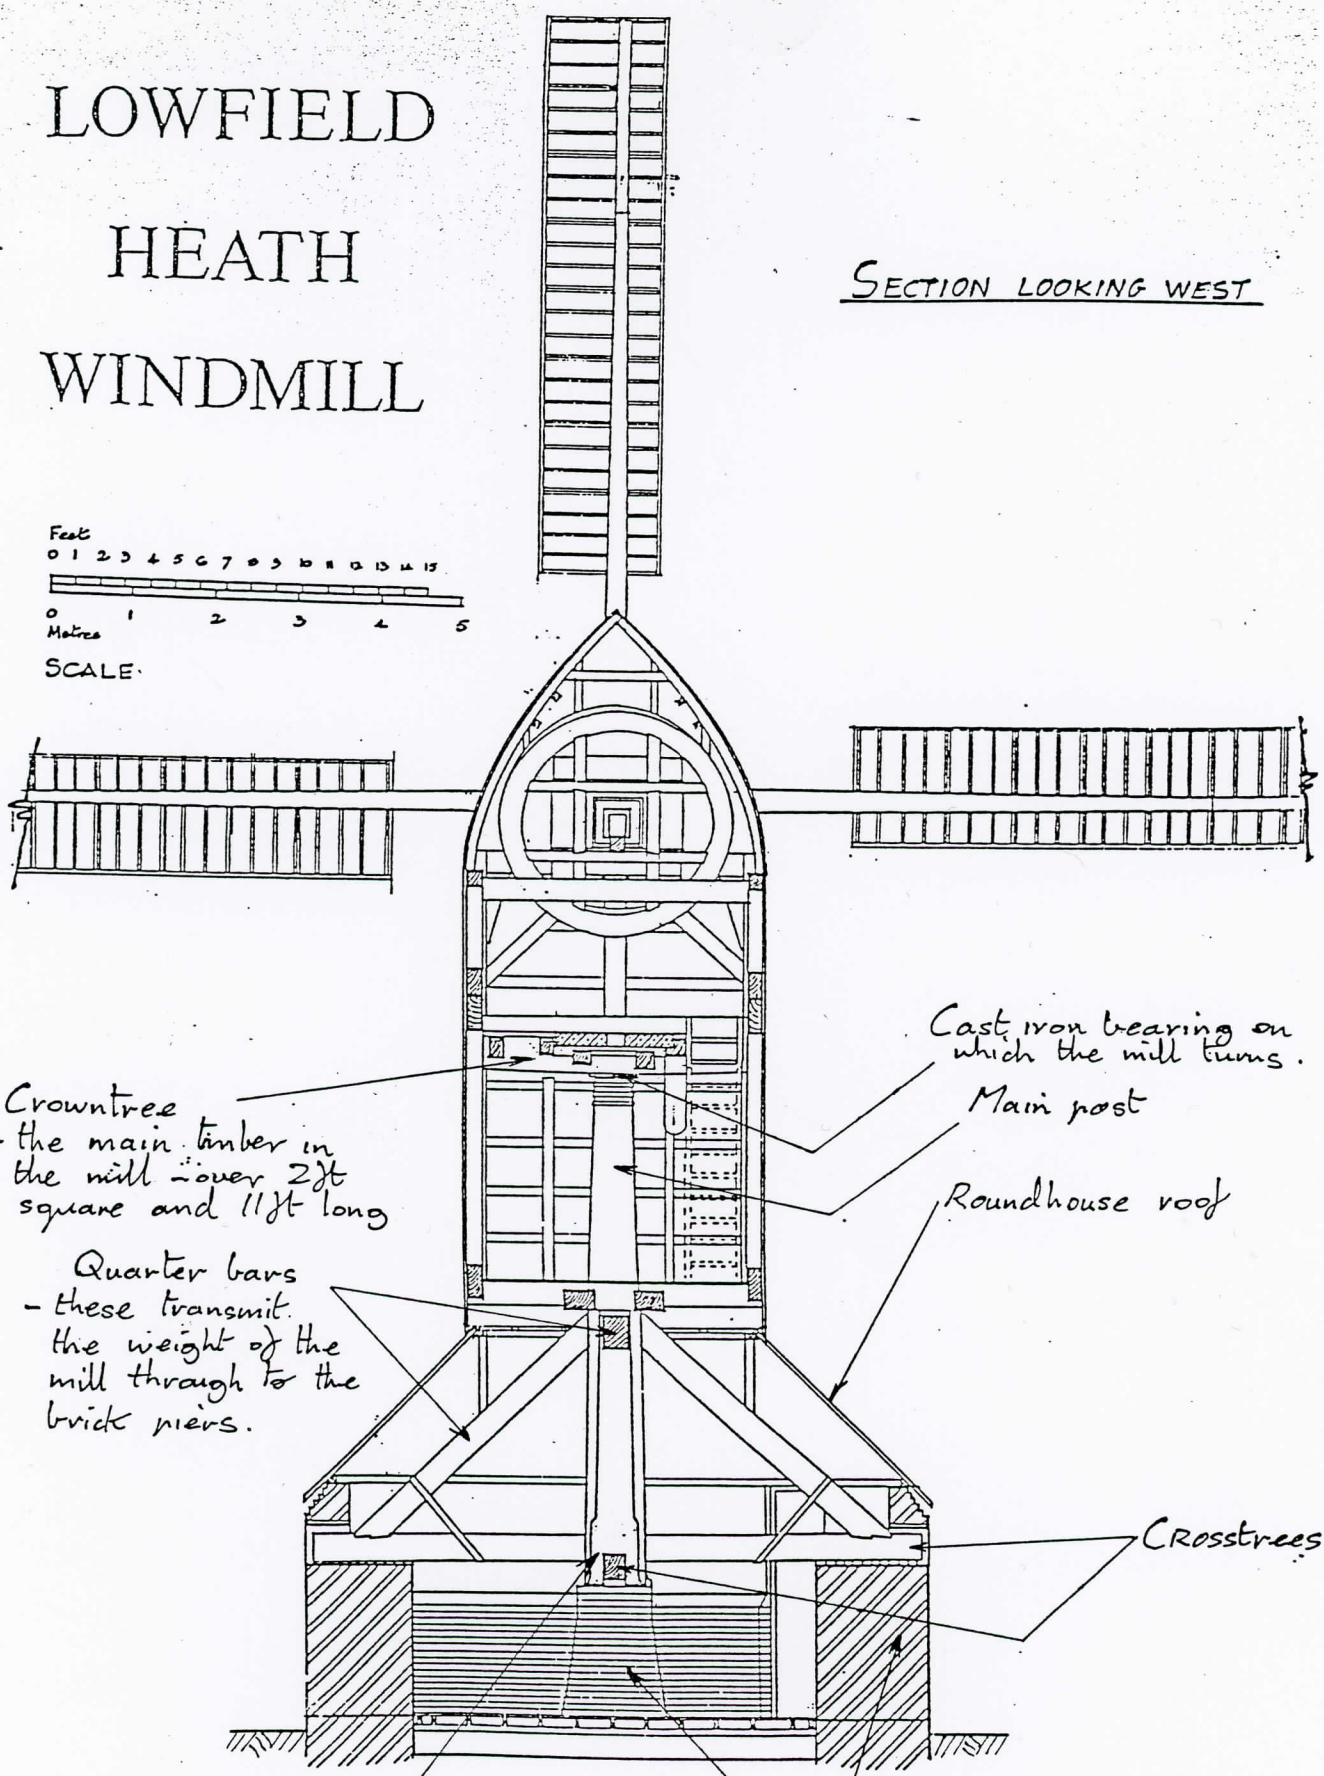 LOWFIELD
HEATH
WINDMILL
SECTION LOOKING WEST
Feet
0 1 2 3 4 5 6 7 8 9 10 11 12 13 14 15
0 1 2 3 4 5
Metres
SCALE.
Cast iron bearing on
which the mill turns.
Main post
Roundhouse roof
Crowntree
- the main timber in
the mill - over 2ft
square and 11ft long
Quarter bars
- these transmit
the weight of the
mill through to the
brick piers.
Crosstrees